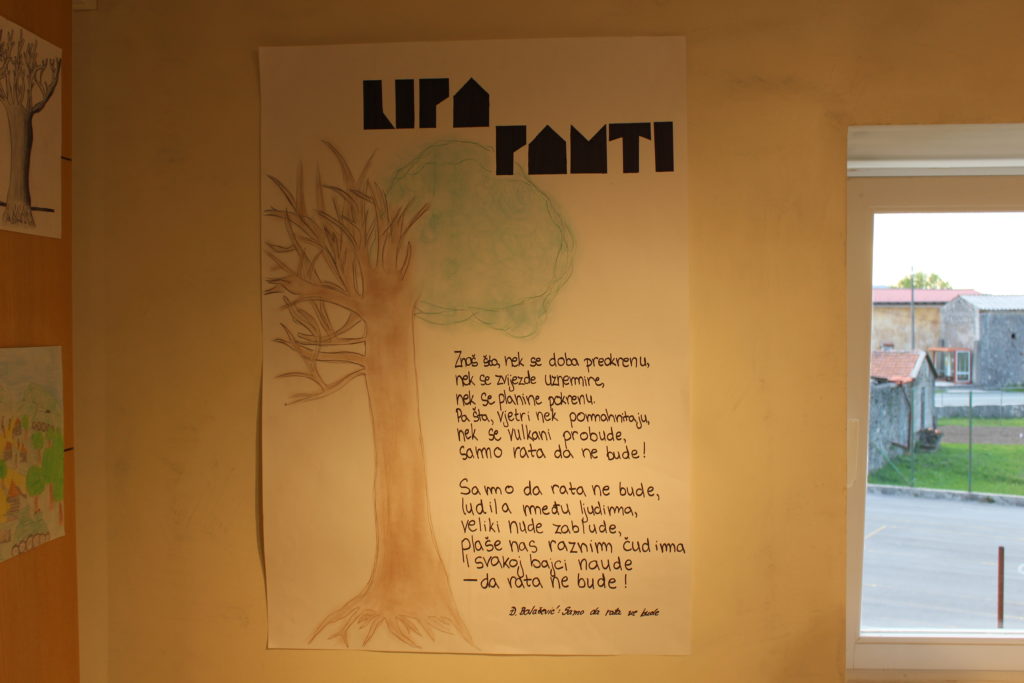 LIPA
PAMTI
Znaš šta, nek se doba preokrenu,
nek se zvijezde uznemire,
nek se planine pokrenu.
Pa šta, vjetri nek pomahnitaju,
nek se vulkani probude,
samo rata da ne bude!
Samo da rata ne bude,
ludila među ljudima,
veliki nude zablude,
plaše nas raznim čudima
i svakoj bajci naude
— da rata ne bude!
Đ. Balašević: Samo da rata ne bude